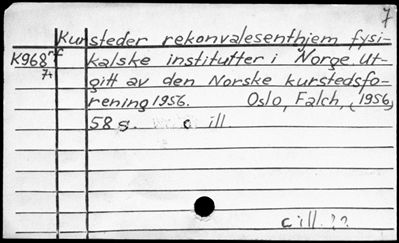 7
Kursteder rekonvalesenthjem fysi-
K968 kalske institutter i Norge. Ut-
7+ gitt av den Norske kurstedsfo-
rening 1956. Oslo, Falch, (1956)
58 s. c ill.
c ill. ??